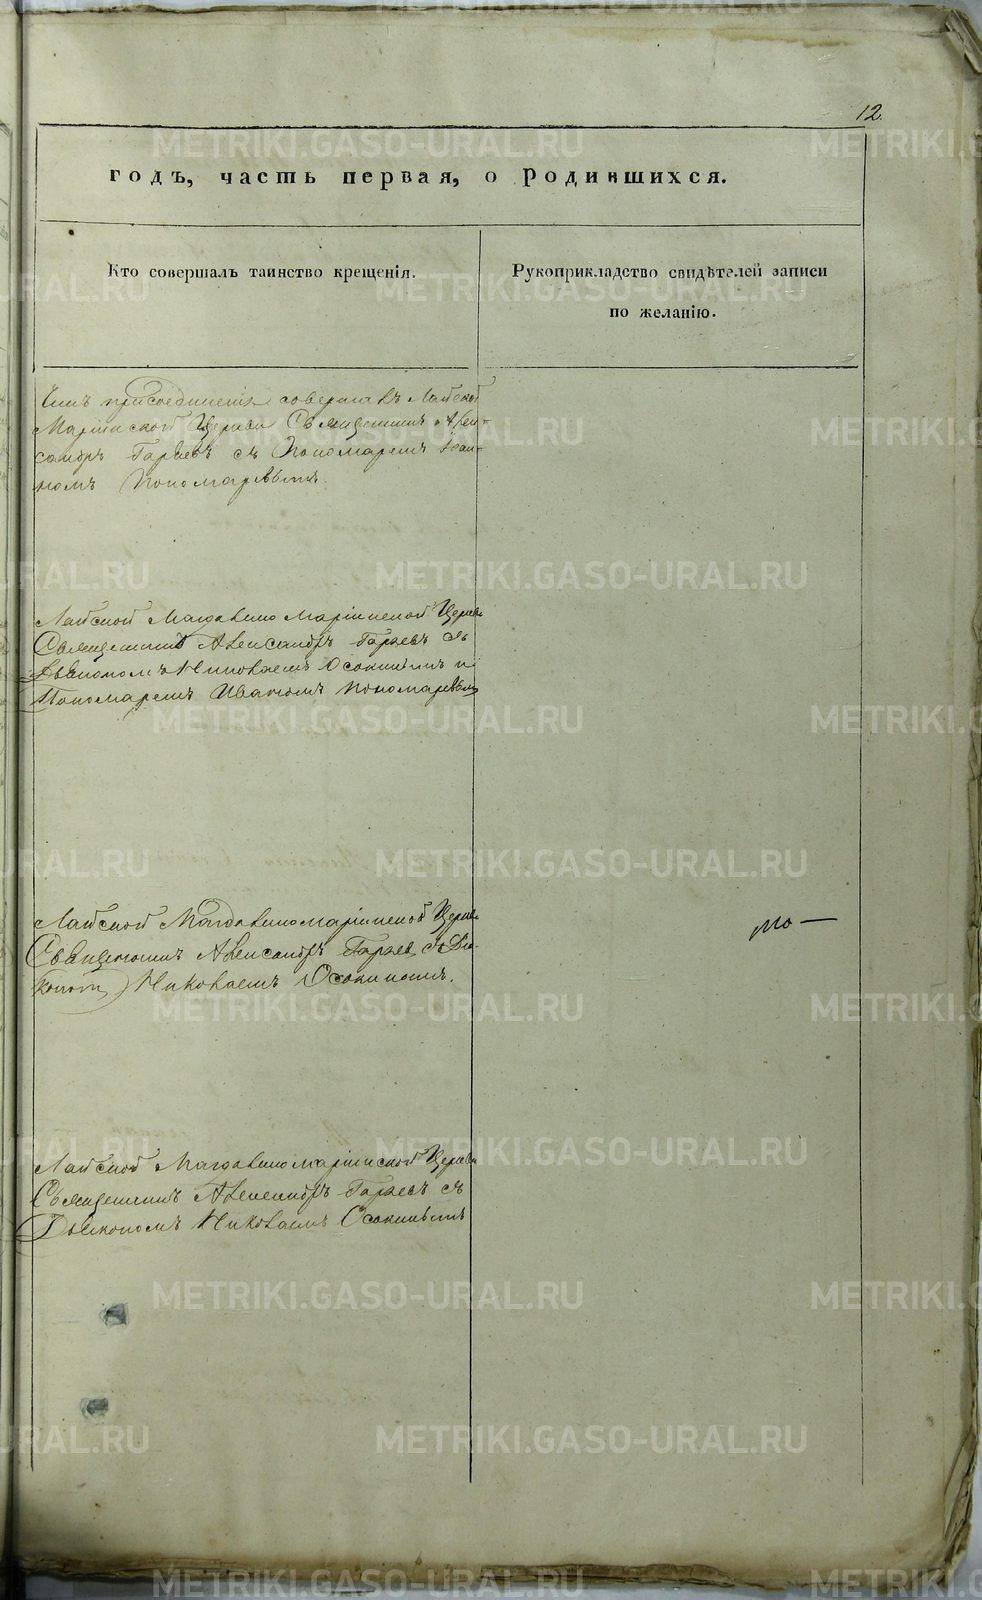 12.
годъ, часть первая, о родившихся.
Кто совершалъ таинство крещенія.
Рукоприкладство свидѣтелей записи
по желанію.
Чинъ присоединенія совершалъ Лайской
Маріинской Церкви Священникъ Алек-
сандръ Гаряевъ съ Пономаремъ Іоан-
номъ Пономаревымъ.
Лайской Магдалино Маріинской Церкви
Священникъ Александръ Гаряевъ съ
Діакономъ Николаемъ Осокинымъ и
Пономаремъ Иваномъ Пономаревымъ
Лайской Магдалиномаріинской Церкви
Священникъ Александръ Гаряев съ Діа-
кономъ Николаемъ Осокинымъ.
Лайской Магдалиномаріинской Церкви
Священникъ Александръ Гаряевъ съ
Діакономъ Николаемъ Осокинымъ
METRIKI.GASO-URAL.RU